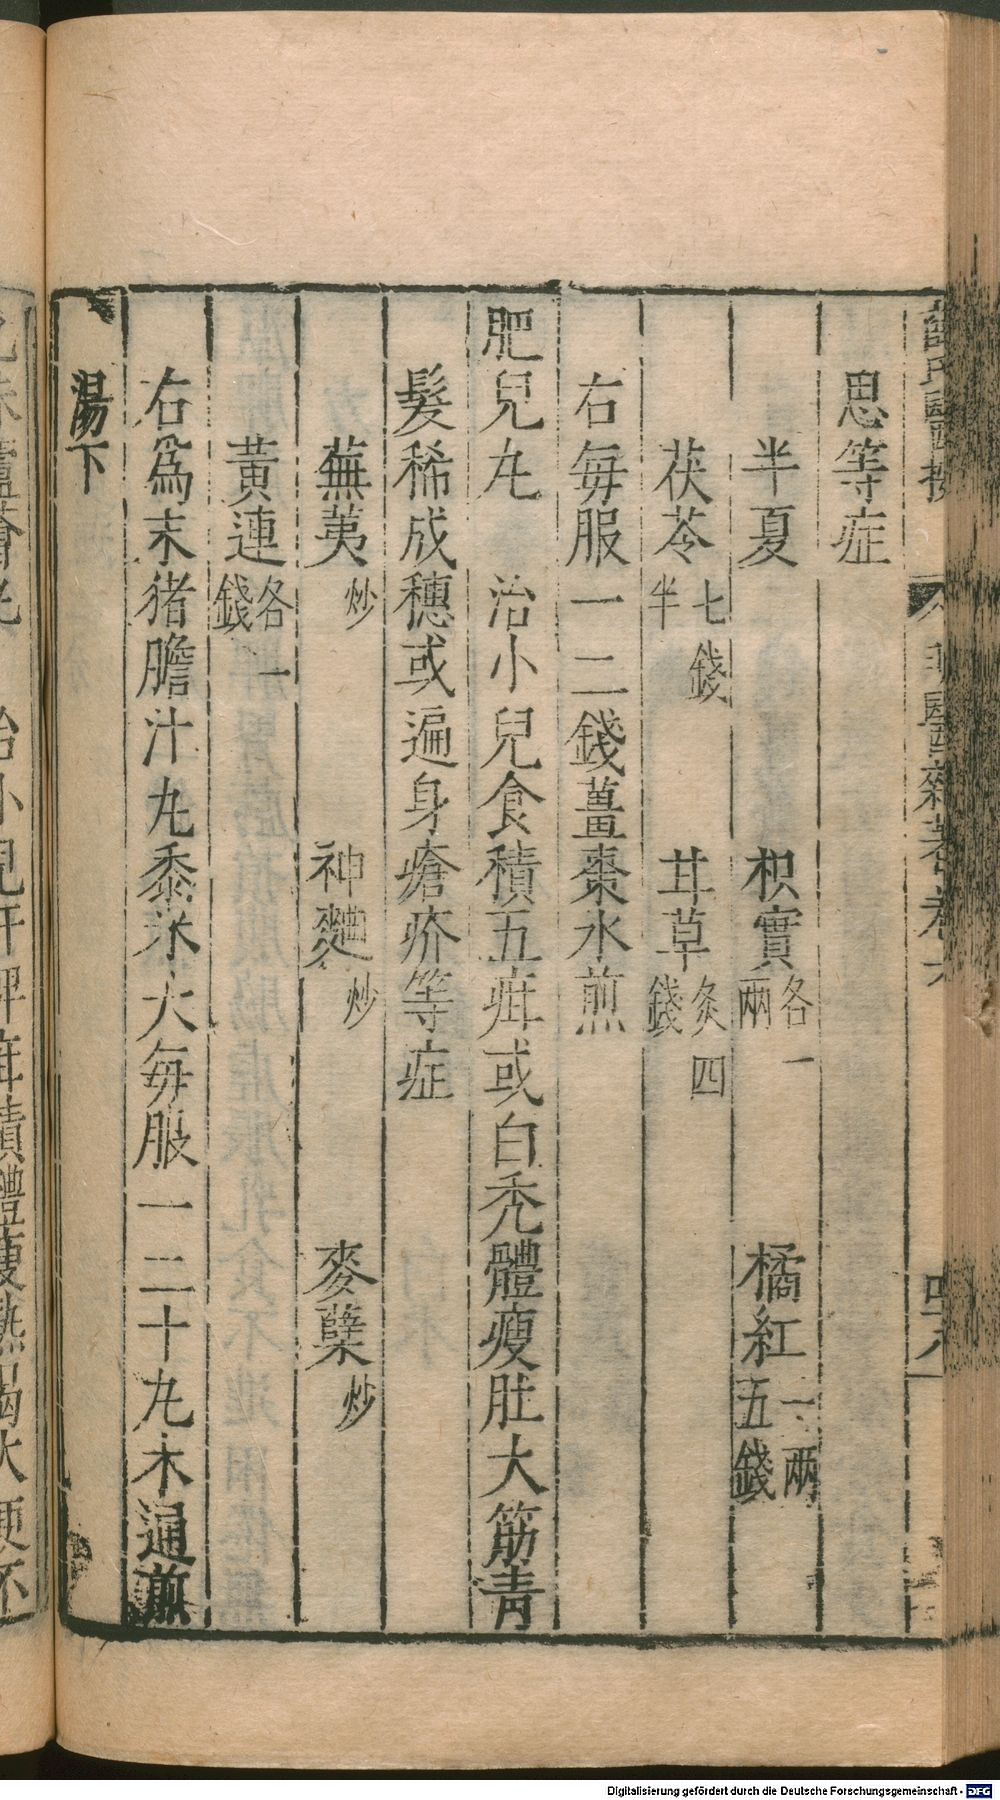 思等症
半夏　枳實各一兩　橘紅一兩五錢
茯苓七錢半　甘草炙四錢
右每服一二錢薑棗水煎
肥兒丸　治小兒食積五疳或白禿體瘦肚大筋青
髮稀成穗或遍身瘡疥等症
蕪荑炒　神麯炒　麥蘖炒
黃連各一錢
右爲末猪膽汁丸黍米大每服一二十丸木通煎
湯下
治小兒肝脾疳積體瘦熱渴大便不
Digitalisierung gefördert durch die Deutsche Forschungsgemeinschaft - DFG